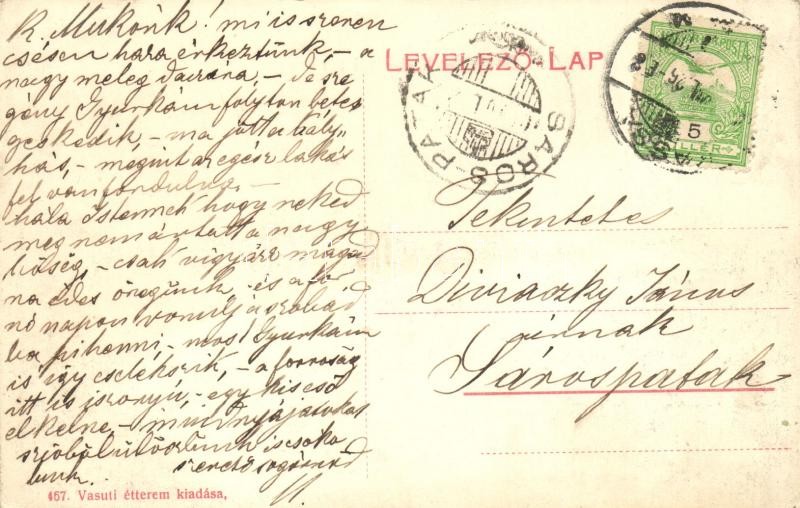 K. Mukónk! mi is szeren
csésen haza érkeztünk, – a
nagy meleg daczára, – de sze
gény Gyurkám folyton beteg
geskedik, – ma jött a kály
hás, – megint az egész lakás
fel van fordulva. –
hála Istennek hogy neked
meg nem ártott a nagy
hőség, – csak vigyázz magad
ra édes öregünk és a fő
nő napon vonulj a szobád
ba pihenni, – most Gyurkám
is így cselekszik, – a forróság
itt is iszonyú, – egy kis eső
elkelne, – mindnyájatokat
szívből üdvözlünk is csóko
lunk. szerető sógornőd
LEVELEZŐ LAP
SÁROS-PATAK
POSTA
5
FILLÉR
Tekintetes
Diviaczky János
úrnak
Sárospatak
467. Vasuti étterem kiadása,